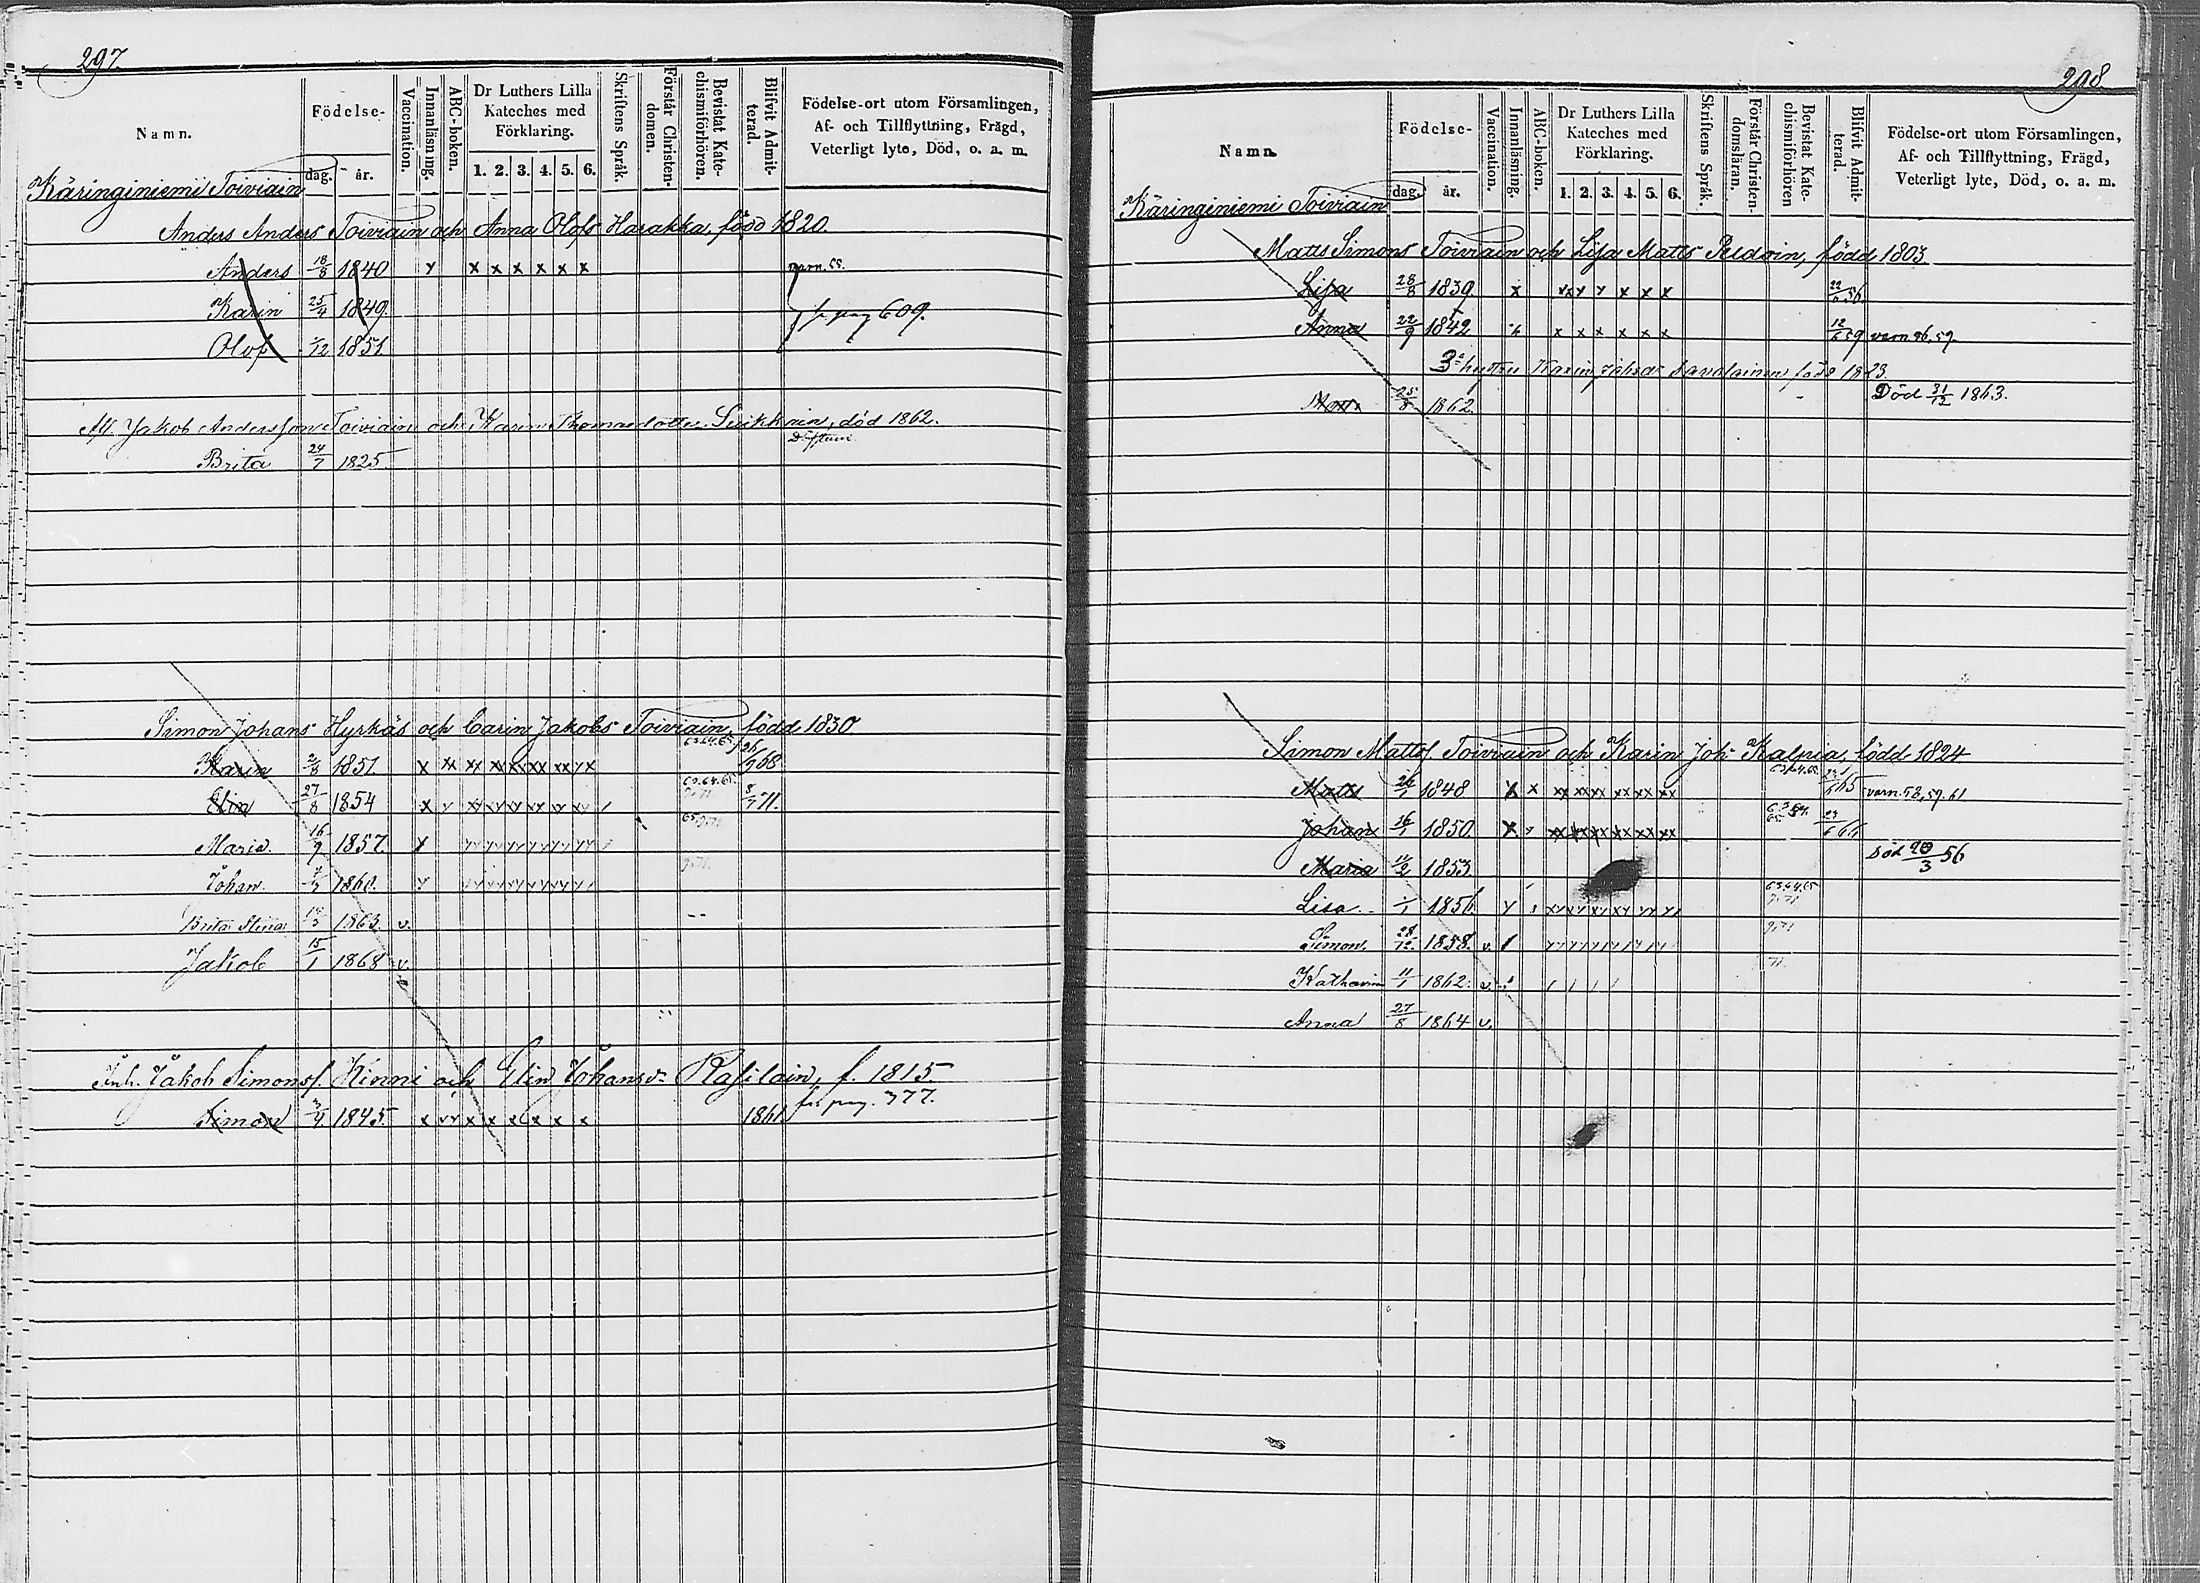 297.
Namn.
Födelse-
dag. år.
Vaccination.
Innanläsning.
ABC-boken.
Dr Luthers Lilla
Kateches med
Förklaring.
1. 2. 3. 4. 5. 6.
Skriftens Språk.
Förstår Christen-
domen.
Bevistat Kate-
chismiförhören.
Blifvit Admit-
terad.
Födelse-ort utom Församlingen,
Af- och Tillflyttning, Frägd,
Veterligt lyte, Död, o. a. m.
Käringiniemi Toiviain
Anders Anders Toiviain och Anna Olofs Harakka, född 1820.
Anders 18/8 1840 x x x x x x x varn. 55.
Karin 25/4 1849. fr pag 609.
Olof /12 1851.
Jakob Andersson Toiviain och Karin Thomasdotter Suikkain, död 1862.
Brita 24/7 1825
Simon Johans Hyrkäs och Carin Jakobs Toiviain, född 1830
63.64.65.
Karin 2/8 1851. x xx xx xx xx xx xx xx 26/9 68
Elin 27/8 1854 x v xx xx xx xx xx xx 8/7 71.
Maria. 16/9 1857. x
Johan. 1860.
Brita Stina 1863. v.
Jakob 15/1 1868 v.
Inh. Jakob Simonss. Kinni och Elin Johansd. Rasilain, f. 1815.
Simon 3/4 1845. x x x x x x x 1861. fr. pag. 377.
298.
Namn.
Födelse-
dag. år.
Vaccination.
Innanläsning.
ABC-boken.
Dr Luthers Lilla
Kateches med
Förklaring.
1. 2. 3. 4. 5. 6.
Skriftens Språk.
Förstår Christen-
domsläran.
Bevistat Kate-
chismiförhören
Blifvit Admit-
terad.
Födelse-ort utom Församlingen,
Af- och Tillflyttning, Frägd,
Veterligt lyte, Död, o. a. m.
Käringiniemi Toiviain
Matts Simons Toiviain och Lisa Matts Peldoin, född 1803.
Lisa 28/8 1839. x x x x x x x 22/6 56
Anna 22/9 1842 x x x x x x 12/6 59 varn 56, 59.
3e hustru Karin Johsdr Savolainen född 1823.
25/8 1862. Död 31/12 1863.
Simon Mattss. Toiviain och Karin Joh. Kalpia, född 1824
Matts 26/1 1848 x x xx xx xx xx xx xx 65 varn. 58, 59. 61
Johan 16/1 1850. x xx xx xx xx xx xx 66
Maria 1853. Död 20/3 56
63.64.65
Lisa 1/1 1856.
Simon. 28/12 1858. v.
Katharina 11/1 1862. v.
Anna 27/8 1864 v.